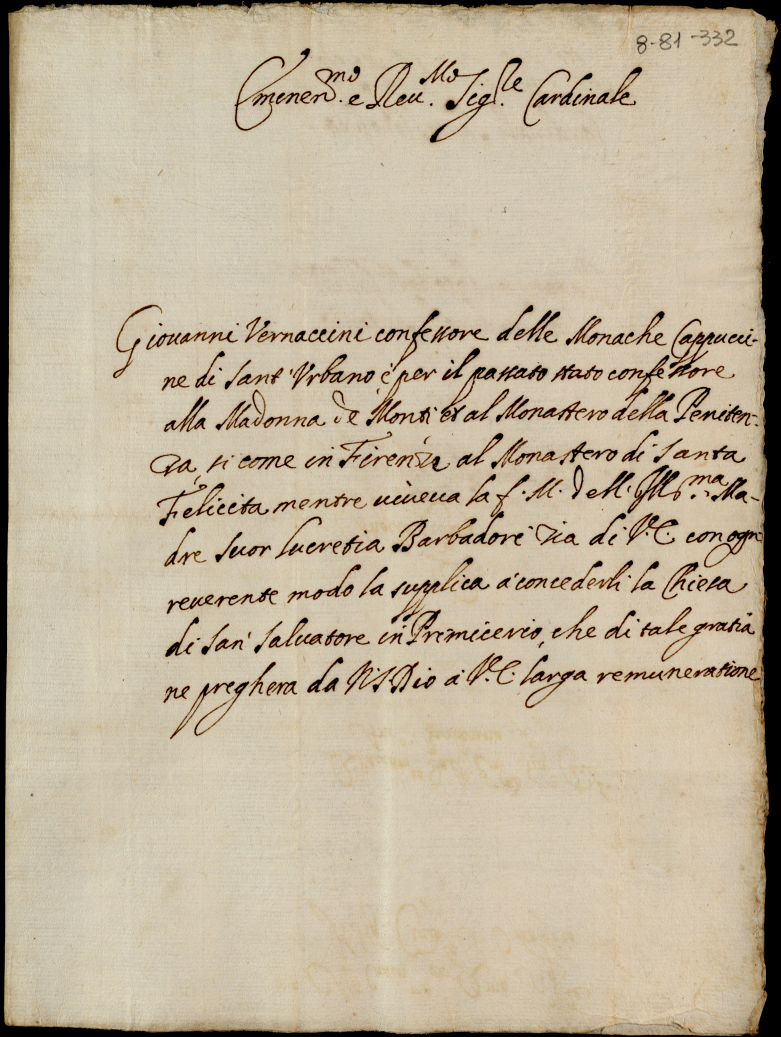 8-81-332
Eminen.mo e Reu.mo Sig.le Cardinale
Giouanni Vernaccini confessore delle Monache Cappucci-
ne di Sant'Vrbano è per il passato stato confessore
alla Madonna de Monti et al Monastero della Peniten-
za, si come in Firenza al Monastero di Santa
Felicita mentre uiueua la f. M. dell. Ill.ma Ma-
dre Suor Lucretia Barbadori zia di V.E. con ogni
reuerente modo la supplica à concederli la Chiesa
di San Saluatore in Primicerio, che di tale gratia
ne preghera da N S Dio à V.E. larga remuneratione